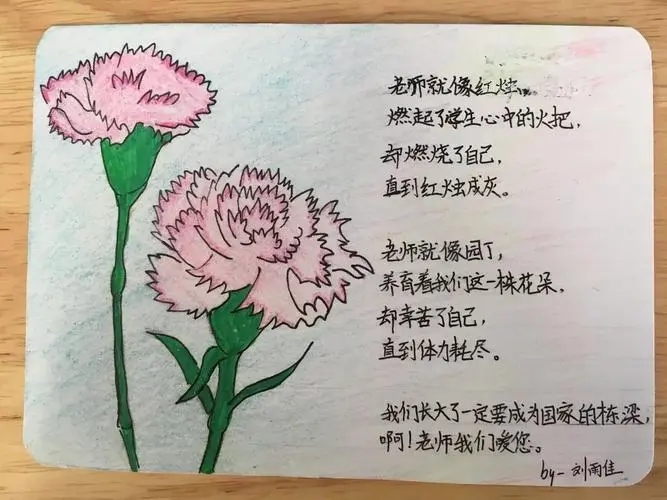 老师就像红烛,
燃起了学生心中的火把,
却燃烧了自己,
直到红烛成灰。
老师就像园丁,
养育着我们这一株花朵,
却幸苦了自己,
直到体力耗尽。
我们长大了一定要成为国家的栋梁,
啊!老师我们爱您。
by-刘雨佳